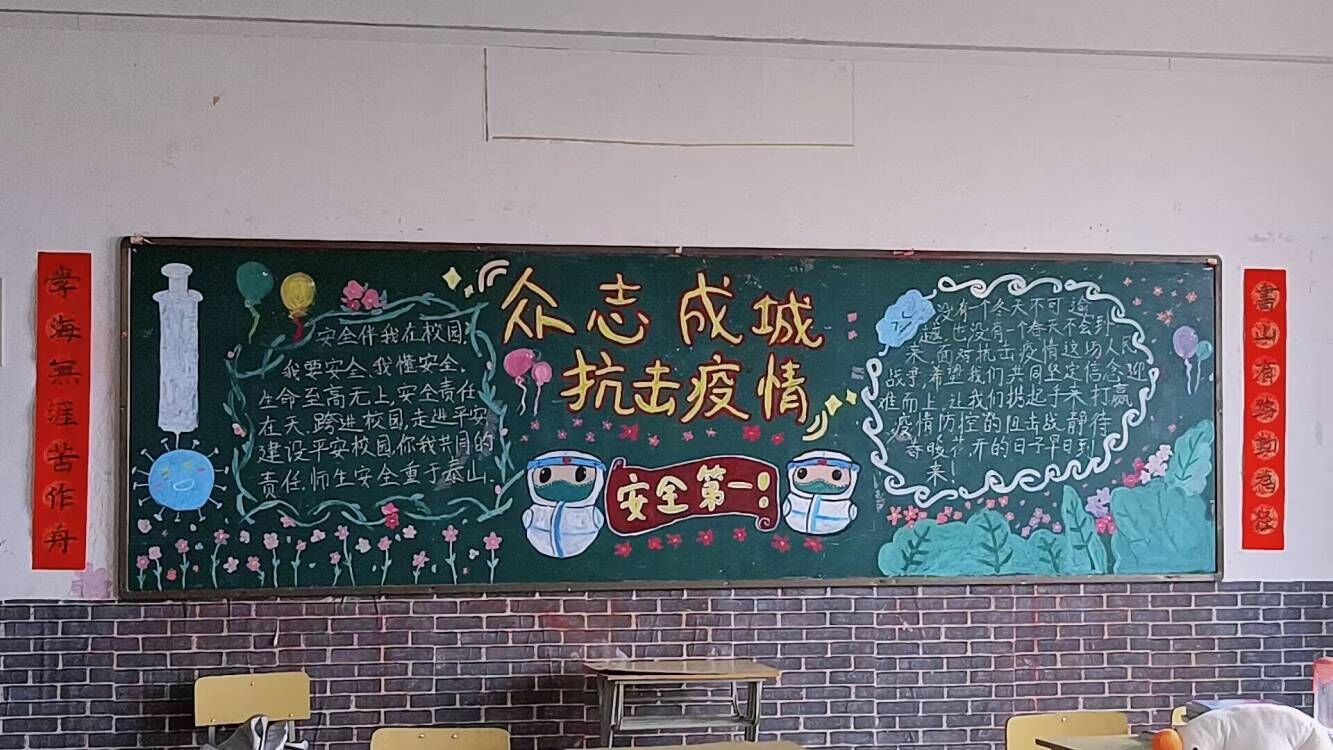 学海無涯苦作舟
安全伴我在校园,
我要安全,我懂安全,
生命至高无上,安全责任
在天,跨进校园,走进平安
建设平安校园,你我共同的
责任,师生安全重于泰山.
众志成城
抗击疫情
安全第一!
没有一个冬天不可逾
越,也没有一个春天不会到
来,面对抗击疫情这场人民
战争,希望我们共同坚定信念,迎
难而上,让我们携起手来,打赢
疫情防控的阻击战,静待
春暖花开的日子早日到
来!
書山有路勤為径